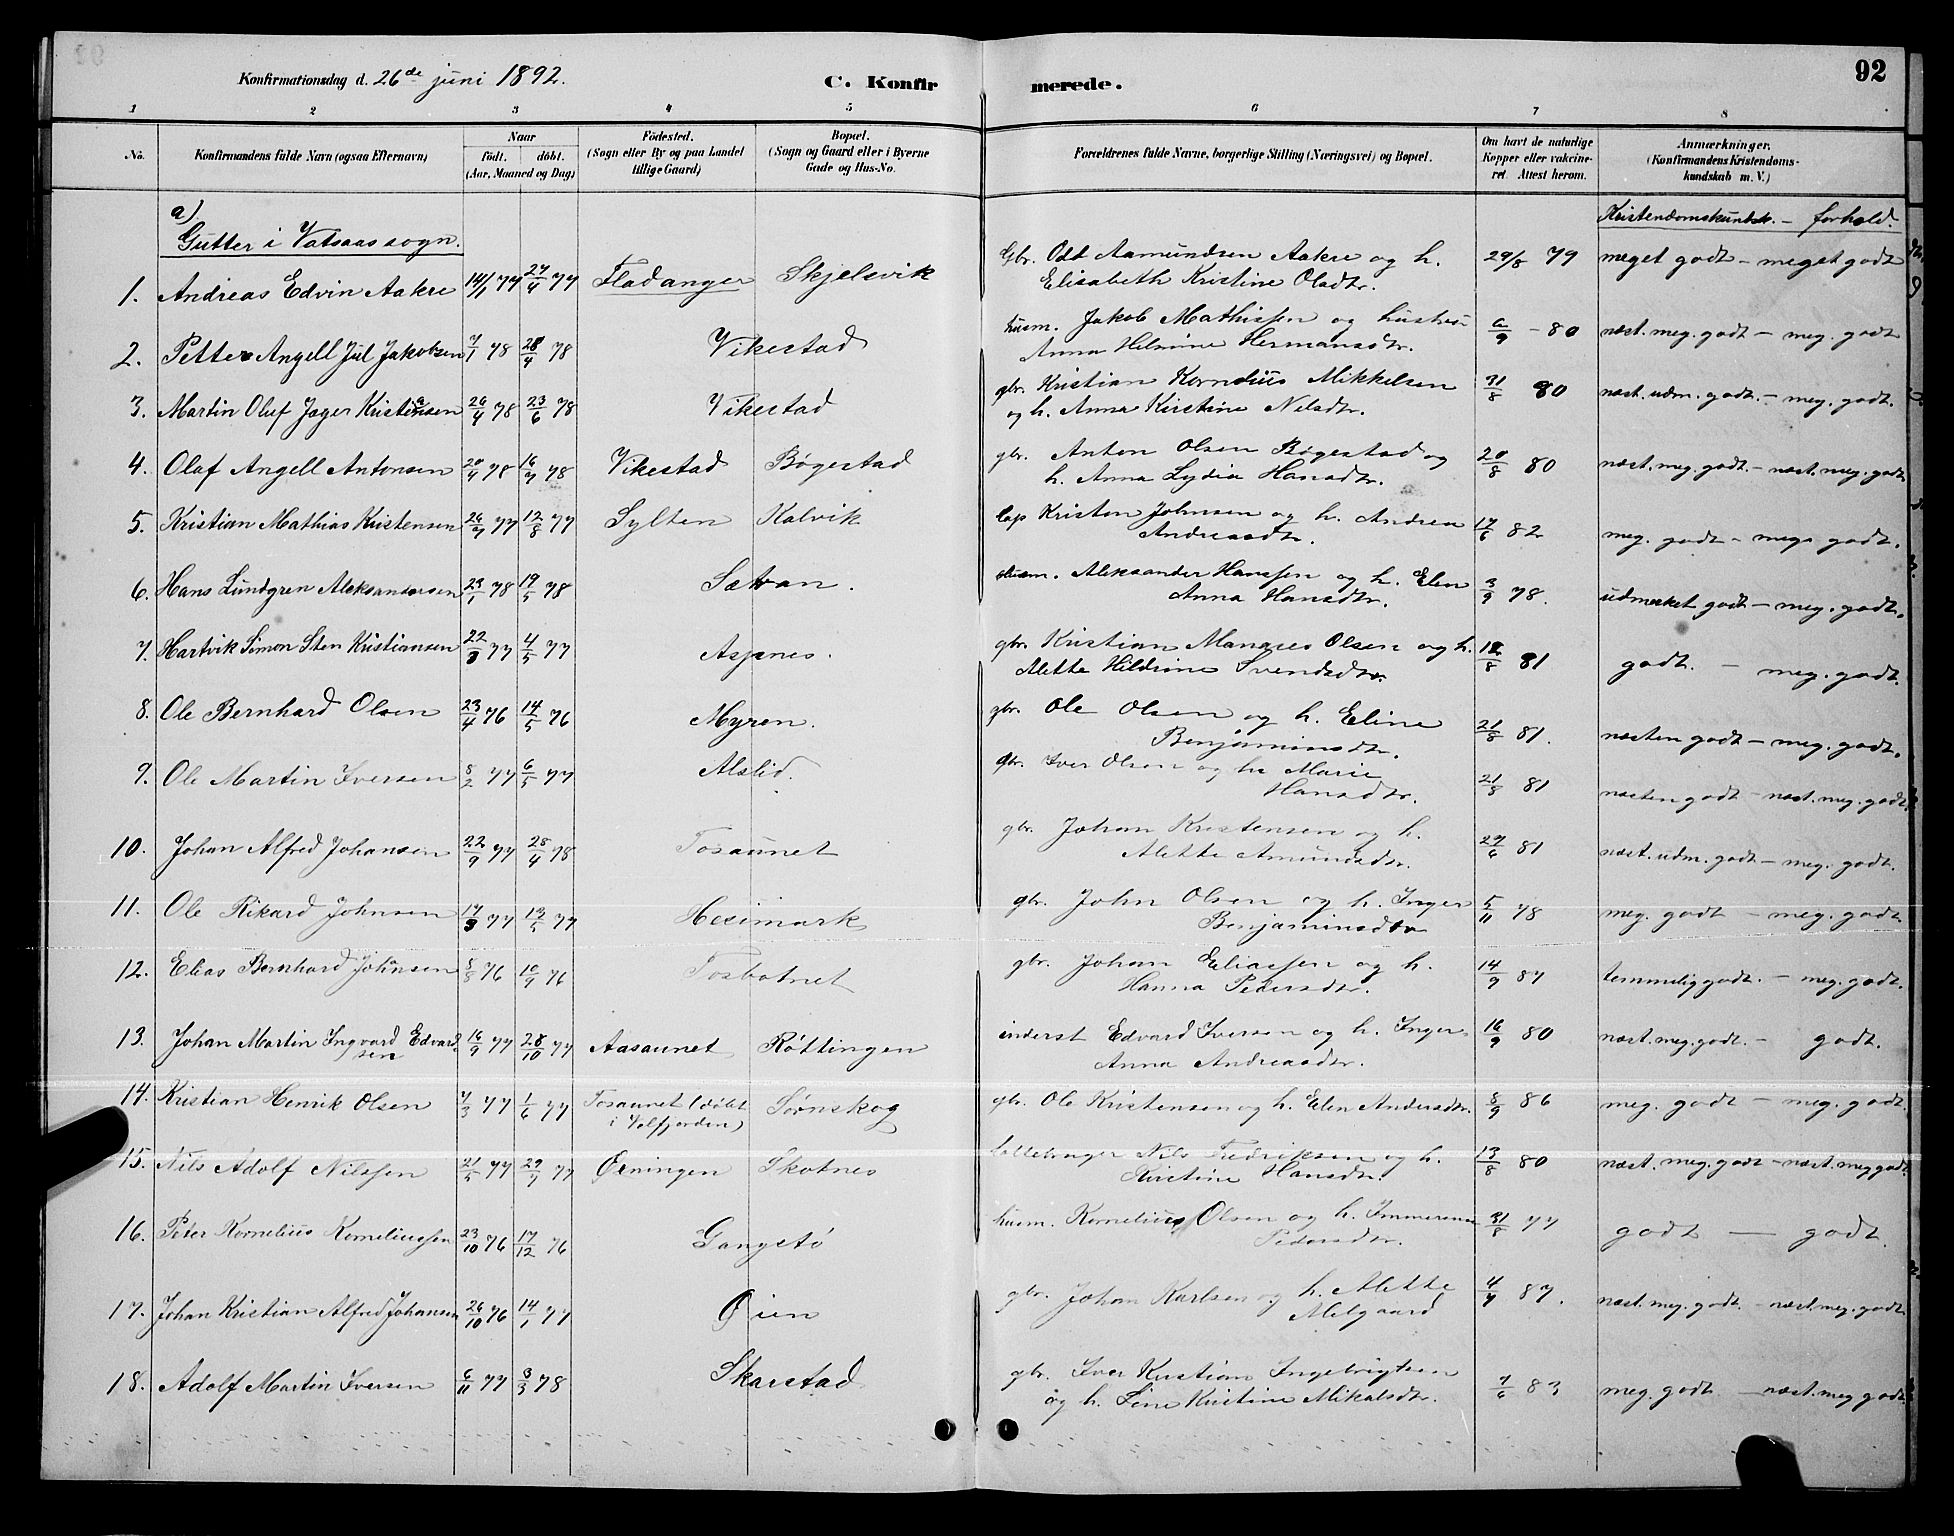 92
Konfirmationsdag d. 26de juni 1892.
C. Konfirmerede.
1 2 3 4 5 6 7 8
No.
Konfirmandens fulde Navn (ogsaa Efternavn)
Naar
födt. döbt.
(Aar, Maaned og Dag)
Födested.
(Sogn eller By og paa Landet
tillige Gaard)
Bopæl.
(Sogn og Gaard eller i Byerne
Gade og Hus-No.
Forældrenes fulde Navne, borgerlige Stilling (Næringsvei) og Bopæl.
Om havt de naturlige
Kopper eller vakcine-
ret. Attest herom.
Anmærkninger.
(Konfirmandens Kristendoms-
kundskab m. V.)
a)
Gutter i Vatsaas sogn.
Kristendomskundsk. – forhold.
1. Andreas Edvin Aakre 14/1 77 27/4 77 Fladanger Skjelsvik Gbr. Odt Aamundsen Aakre og h. 29/8 79 meget godt – meget godt
Elisabeth Kristine Olsdtr.
2. Petter Angell Jul Jakobsen 7/1 78 28/4 78 Vikestad husm. Jakob Mathissen og hustru 6/9 – 80 næst. meg. godt – meg. godt
Anna Helmine Hermansdtr.
3. Martin Oluf Jager Kristiansen 26/4 78 23/6 78 Vikestad gbr. Kristian Kornelius Mikkelsen 31/8 80 næst. udm. godt. – meg. godt.
og h. Anna Kirstine Nilsdtr.
4. Olaf Angell Antonsen 20/4 78 16/7 78 Vikestad Bøgestad gbr. Anton Olsen Bøgestad og 20/8 80 næst. meg. godt. – næst. meg. godt
h. Anna Lydia Hansdtr.
5. Kristian Mathias Kristensen 26/7 77 12/8 77 Sylten Kalvik lap Kristen Johnsen og h. Andrea 17/6 82 meg. godt – meg. godt.
Andreasdtr.
6. Hans Lundgren Aleksandersen 23/1 78 19/5 78 Sætran. husm. Aleksander Hanssen og h. Elen 3/9 78. udmerket godt – meg. godt.
Anna Hansdtr.
7. Hartvik Simon Sten Kristiansen 22/3 77 4/5 77 Aspnes. gbr. Kristian Mangnes Olsen og h. 12/8 81 godt. – meg. godt.
Alette Hildrine Svendsdtr.
8. Ole Bernhard Olsen 23/4 76 14/5 76 Myren. gbr. Ole Olsen og h. Eline 21/8 81. næsten godt – meg. godt.
Benjaminsdtr.
9. Ole Martin Iversen 8/2 77 6/5 77 Alslid. gbr. Iver Olsen og h. Marie 21/8 81 næsten godt – næst. meg. godt.
Hansdtr.
10. Johan Alfred Johansen 22/9 77 28/4 78 Tosaunet gbr. Johan Kristensen og h. 29/6 81 næst. udm. godt – meg. godt.
Alette Amundsdtr.
11. Ole Rikard Johnsen 17/3 77 13/5 77 Heimark gbr. John Olsen og h. Inger 5/11 78 meg. godt – meg. godt.
Benjaminsdtr
12. Elias Bernhard Johansen 5/8 76 10/9 76 Tosbotnet gbr. Johan Eliassen og h. 14/9 87 temmelig godt. – meg. godt.
Hanna Pedersdtr.
13. Johan Martin Ingvard Edvard- 16/9 77 28/10 77 Aasaunet Røttingen inderst Edvard Iversen og h. Inger 16/9 80 næst. meg. godt. – godt.
sen Anna Andreasdtr.
14. Kristian Henrik Olsen 7/3 77 1/6 77 Tosaunet (døbt Sørnskog gbr. Ole Kristensen og h. Elen Andersdtr. 8/9 86 meg. godt – meg. godt.
i Velfjorden)
15. Nils Adolf Nilssen 21/5 77 29/7 77 Øiningen Skotnes Nils Fredriksen og h. 13/8 80 næst. meg. godt – næst. meg. godt.
Kristine Hansdtr.
16. Peter Kornelius Korneliussen 23/10 76 17/12 76 Gangstø husm. Kornelius Olsen og h. 31/8 77 godt – godt.
Pedersdtr.
17. Johan Kristian Alfred Johansen 26/10 76 14/1 77 Øien gbr. Johan Karlsen og h. Alette 4/7 87. næst. meg. godt. – næst. meg. godt
Melgaard
18. Adolf Martin Iversen 6/11 77 3/3 78 Skarstad gbr. Iver Kristian Ingebrigtsen 7/6 83 meg. godt. – næst. meg godt
og h. Line Kristine Mikalsdtr.